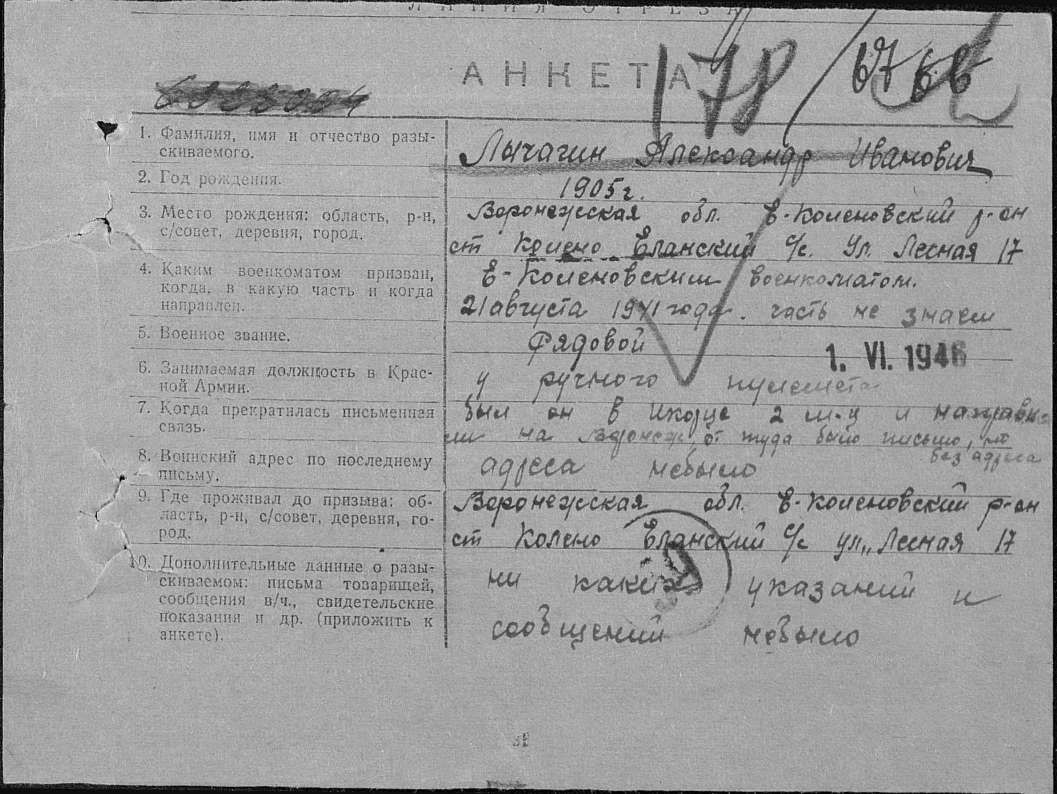 ЛИНИЯ ОТРЕЗА
АНКЕТА
178/
6766
1. Фамилия, имя и отчество разы-
скиваемого.
Лычагин Александр Иванович
2. Год рождения.
1905 г.
3. Место рождения: область, р-н,
с/совет, деревня, город.
Воронежская обл. Е-Коленовский р-он
ст Колено Еланский с/с. ул. Лесная 17
4. Каким военкоматом призван,
когда, в какую часть и когда
направлен.
Е-Коленовским военкоматом.
21 августа 1941 года. часть не знаем
5. Военное звание.
Рядовой
1. VI. 1946
6. Занимаемая должность в Крас-
ной Армии.
у ручного пулемета
7. Когда прекратилась письменная
связь.
был он в Икорце 2 м-ц и направи
ли на Воронеж от туда было письмо, но
без адреса
8. Воинский адрес по последнему
письму.
адреса небыло
9. Где проживал до призыва: об-
ласть, р-н, с/совет, деревня, го-
род.
Воронежская обл. Е-Коленовский р-он
ст Колено Еланский с/с ул. Лесная 17
10. Дополнительные данные о разы-
скиваемом: письма товарищей,
сообщения в/ч., свидетельские
показания и др. (приложить к
анкете).
ни каких указаний и
сообщений небыло